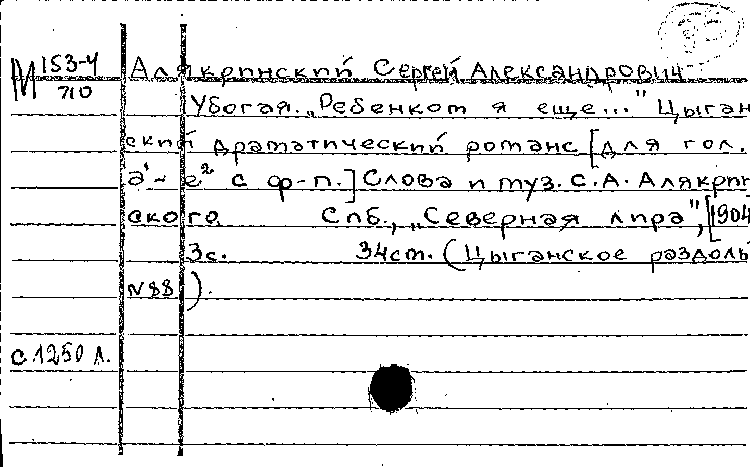 М 153-4/710
Алякринский Сергей Александрович
Убогая. „Ребенком я еще..." Цыган
ский драматический романс [для гол.
a¹-e² с ф-п.] Слова и муз. С.А. Алякрин
ского. Спб., „Северная лира", [1904
3с. 34см. (Цыганское раздоль
N 88).
с 1250 л.